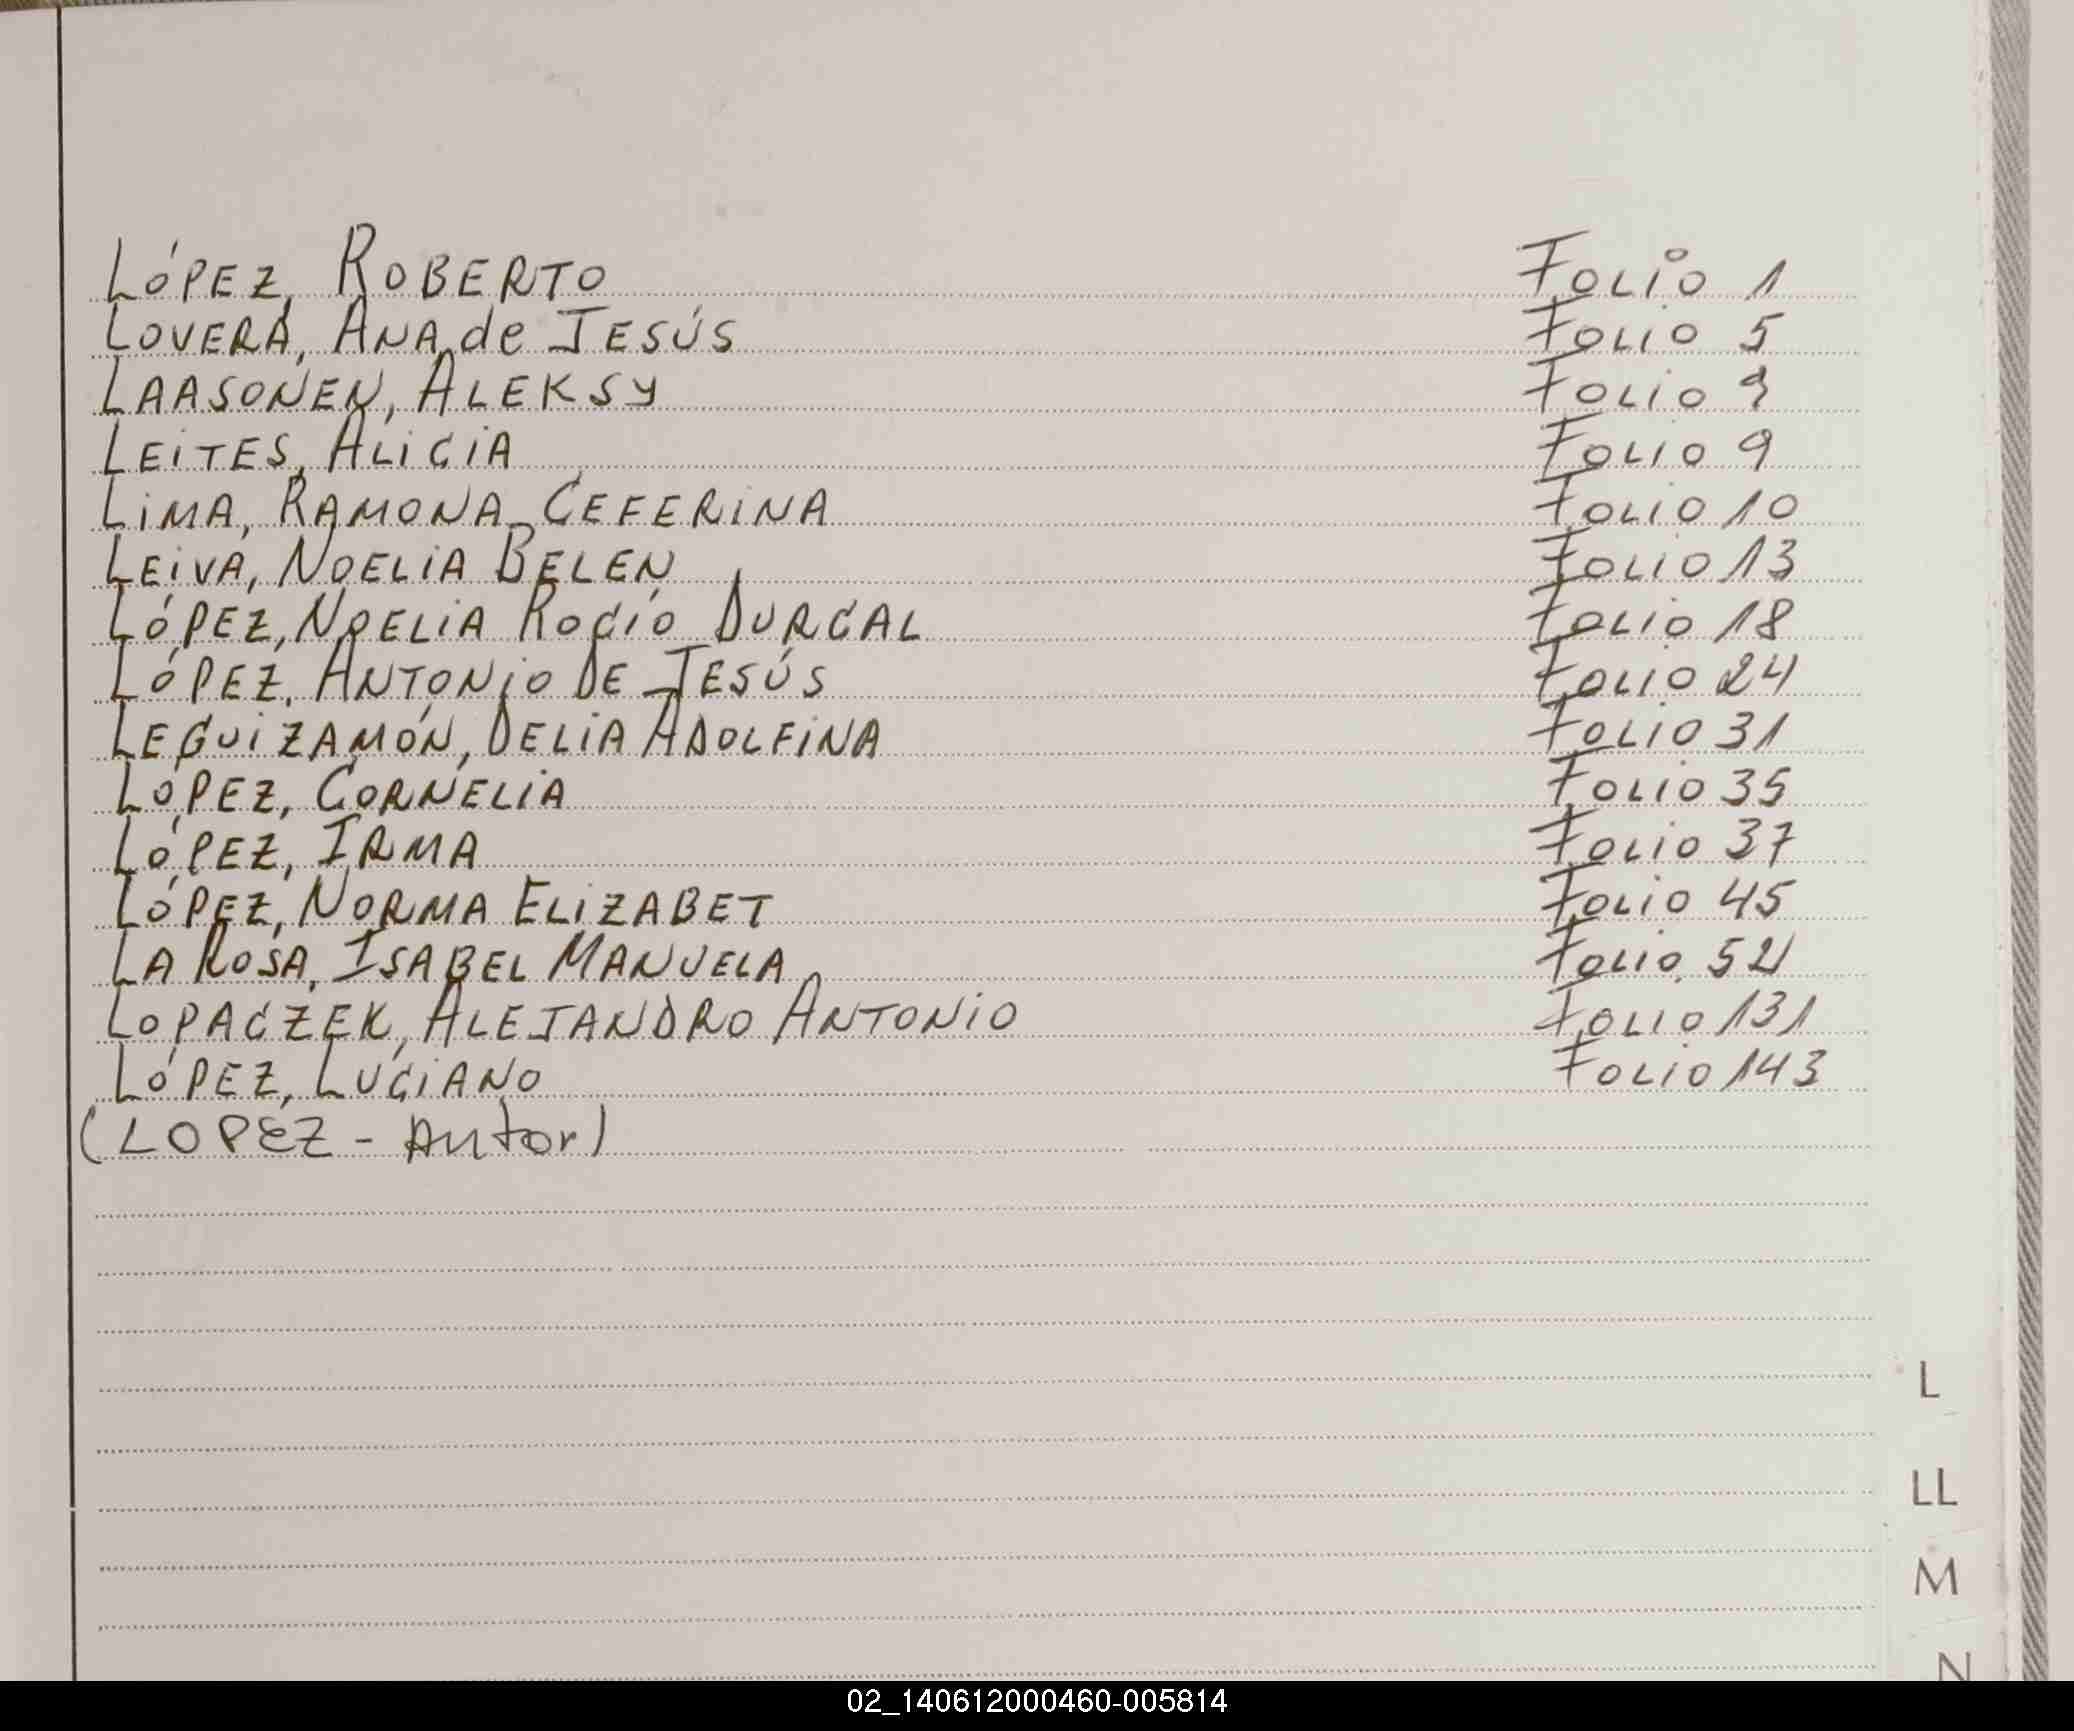 López, Roberto Folio 1
Lovera, Ana de Jesús Folio 5
Laasonen, Aleksy Folio 9
Leites, Alicia Folio 9
Lima, Ramona Ceferina Folio 10
Leiva, Noelia Belen Folio 13
López, Noelia Rocío Durcal Folio 18
López, Antonio De Jesús Folio 24
Leguizamón, Delia Adolfina Folio 31
López, Cornelia Folio 35
López, Irma Folio 37
López, Norma Elizabet Folio 45
La Rosa, Isabel Manuela Folio
Lopaczek, Alejandro Antonio Folio 131
López, Luciano Folio 143
(LOPEZ - Autor)
L
LL
M
N
02_140612000460-005814